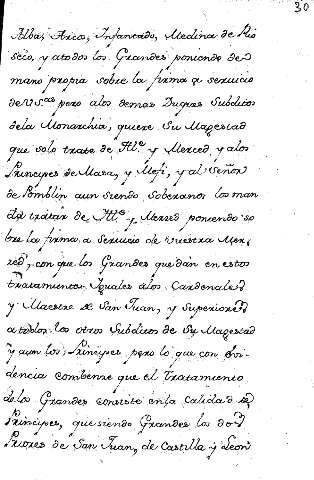 30
Alba, Arcos, Infantado, Medina de Rio
seco, y atodos los Grandes poniendo de
mano propia sobre la firma a seruicio
de V.s.as pero alos demas Duques Subditos
dela Monarchia, quiere Su Magestad
que solo trate de Ill.e y Merced, y alos
Principes de Masa, y Mofi, y al Señor
de Pomblin aun siendo soberanos los man
da tratar de Ill.e y Merced poniendo so
bre la firma a seruicio de vuestra Mer
ced, con que los Grandes quedan en estos
tratamientos Iguales alos Cardenales
y Maestre de San Juan, y Superiores
a todos los otros Subditos de Su Magestad
y aun los Principes pero lo que con evi
dencia combenze que el Tratamiento
de los Grandes consiste en la Calidad de
Principes, que siendo Grandes los dos
Priores de San Juan, de Castilla y Leon